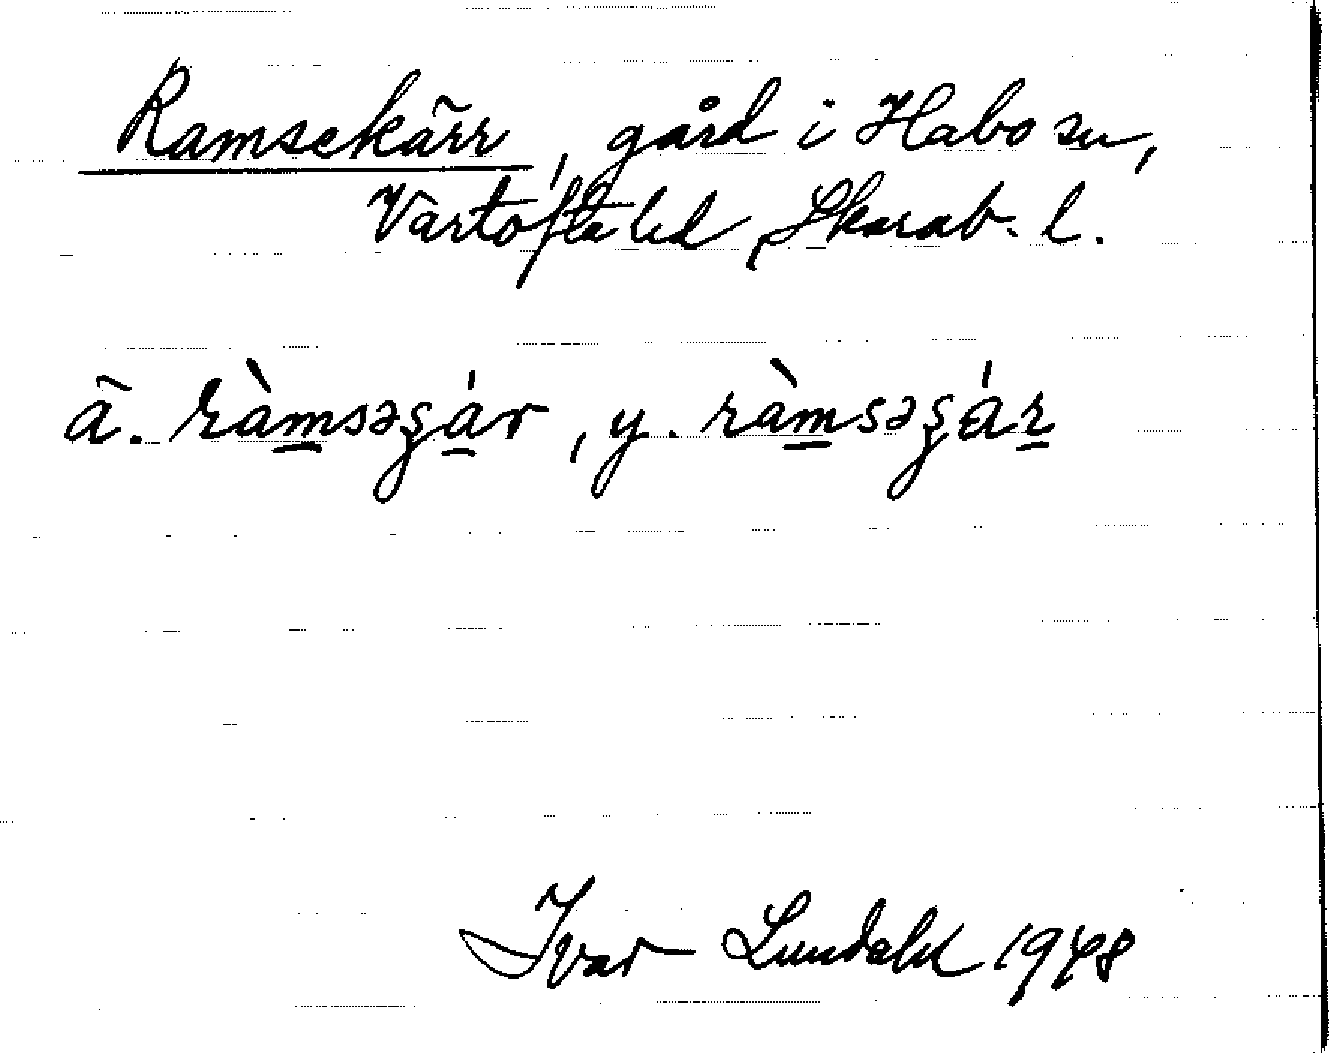 Ramsekärr, gård i Habo sn,
Vartofta hd, Skarab. l.
ä. ràm̲səʂá̲r, y. ràm̲səʂár̲
Ivar Lundahl 1948